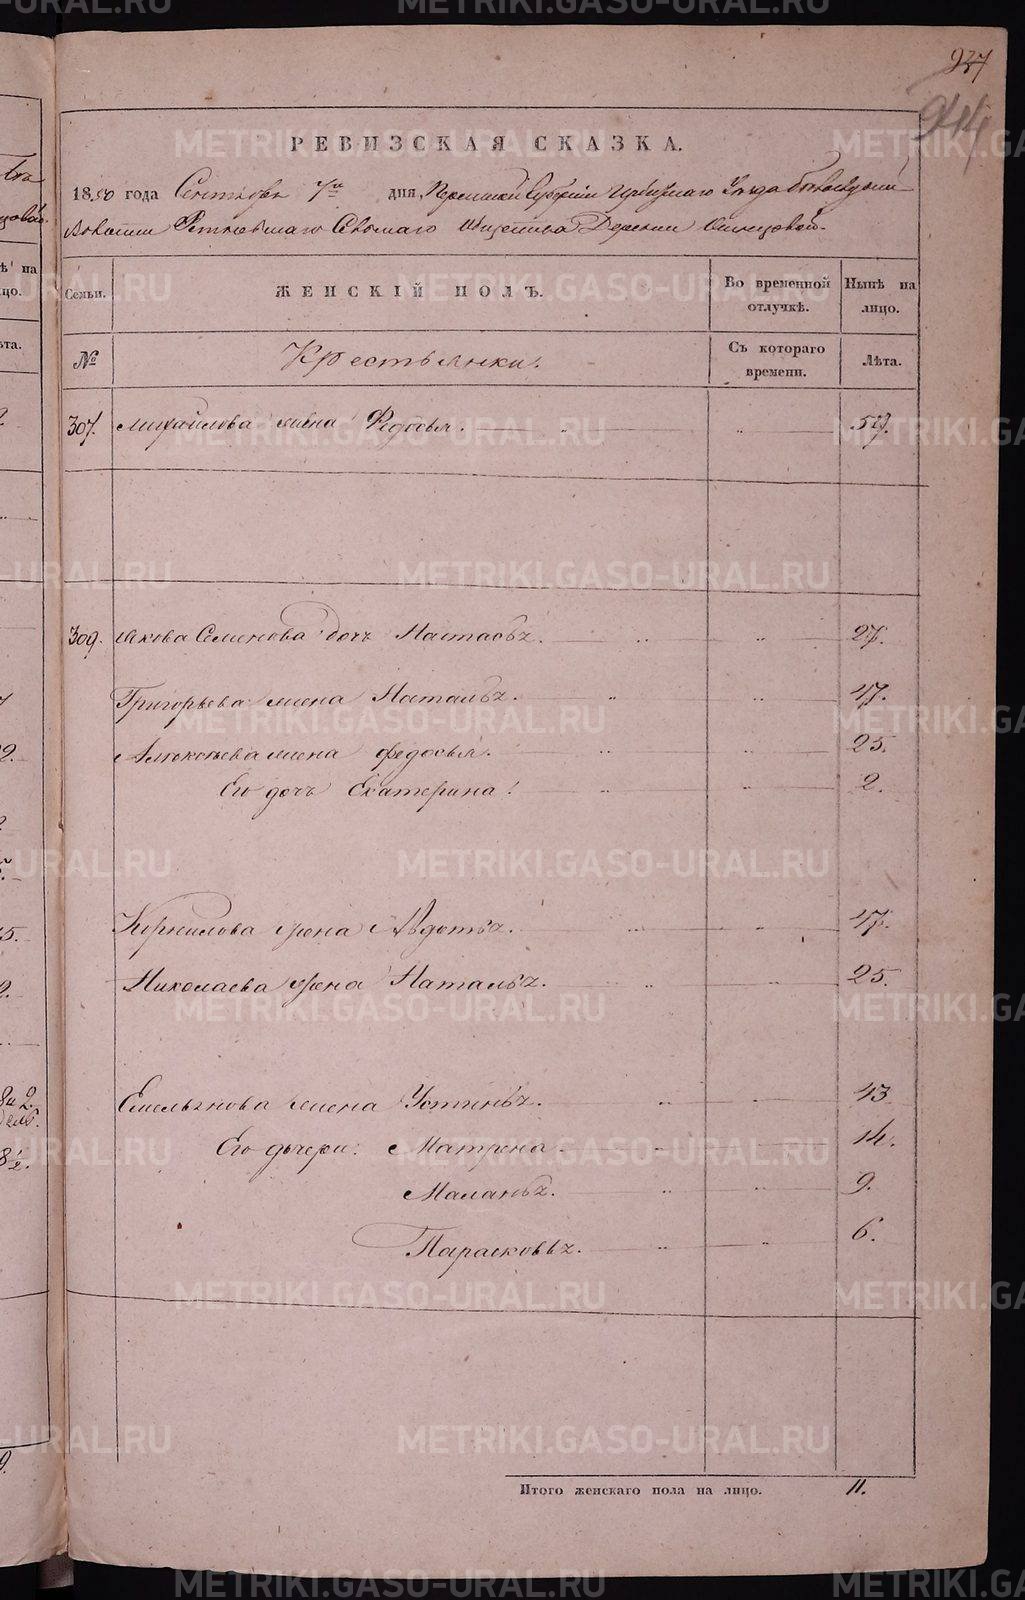 937
944
РЕВИЗСКАЯ СКАЗКА.
1850 года Сентября 7го дня, Пермской Губернiи Ирбитского Уѣзда
Волости Сельскаго Общества Деревни
Семьи. ЖЕНСКIЙ ПОЛЪ. Во временной отлучкѣ. Нынѣ на лицо.
№ Крестьянки. Съ котораго времени. Лѣта.
307. Михайлова жена Федосья. 57.
309. Якова Семенова дочь Настасья. 27.
Григорьева жена Наталья. 47.
Алексѣева жена Федосья. 25.
Его дочь Екатерина. 2.
Корнилова жена Авдотья. 47.
Николаева жена Наталья. 25.
Емельянова жена Устинья. 43
Его дочери: Матрена. 14.
Маланья. 9.
Парасковья. 6.
Итого женскаго пола на лицо. 11.
METRIKI.GASO-URAL.RU